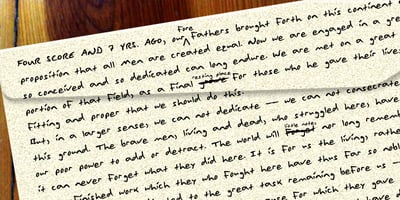 FOUR SCORE AND 7 YRS. AGO, our Fore Fathers brought forth on this continent a
proposition that all men are created equal. Now we are engaged in a gre
so conceived and so dedicated can long endure. We are met on a great
portion of that field, as a final resting place for those who he gave their lives
Fitting and proper that we should do this.
But, in a larger sense, we can not dedicate — we can not consecrate
this ground. The brave men, living and dead, who struggled here, have
our poor power to add or detract. The world will little note, nor long remember
it can never forget what they did here. It is for us the living, rather
Finished work which they who fought here have thus far so nobl
to the great task remaining before us —
cause for which they gave